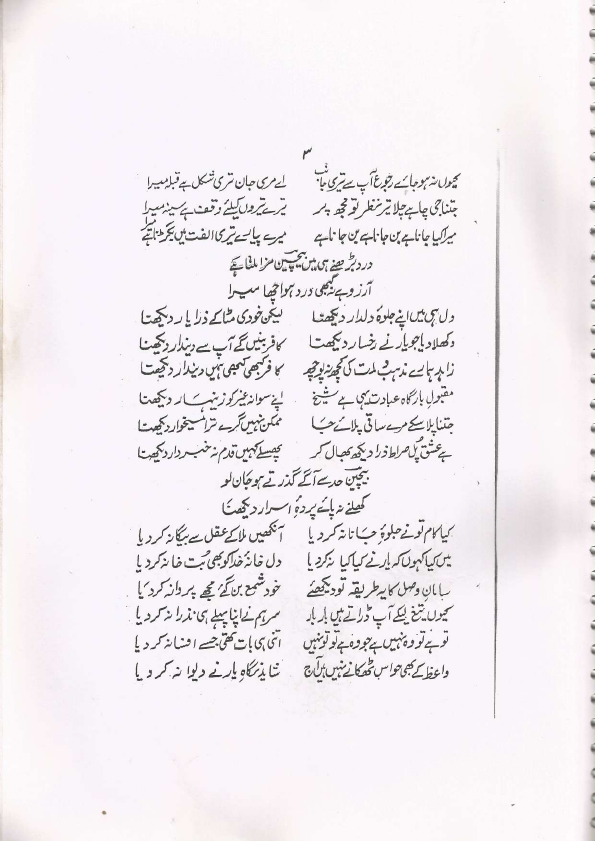 ۳
کیوں نہ ہو جائے رجوع آپ سے تیری جانب اے مری جان تری شکل ہے قبلہ میرا
جتنا جی چاہے چلا تیرِ نظر تو مجھ پر تیرے تیروں کیلئے وقف ہے سینہ میرا
میرا کیا جانا ہے بن جانا ہے بن جانا ہے میرے پیارے تیری الفت میں بگڑنا تیرا
درد بڑھنے ہی میں بیچین مزا ملتا ہے
آرزو ہے نہ کبھی درد ہو اچھا میرا
دل ہی میں اپنے جلوۂ دلدار دیکھنا لیکن خودی مٹا کے ذرا یار دیکھنا
دکھلا دیا جو یار نے رخسار دیکھنا کافر بنیں گے آپ سے دیندار دیکھنا
زاہد ہمارے مذہب و ملت کی کچھ نہ پوچھ کافر کبھی کبھی ہمیں دیندار دیکھنا
مقبول بارگاہ عبادت یہی ہے شیخ اپنے سوا نہ غیر کو زینہار دیکھنا
جتنا پلا سکے مرے ساقی پلائے جا ممکن نہیں گرے ترا میخوار دیکھنا
ہے عشق پُل صراط ذرا دیکھ بھال کر پھسلے کہیں قدم نہ خبردار دیکھنا
بیچین حد سے آگے گذرتے ہو جان لو
کھلنے نہ پائے پردۂ اسرار دیکھنا
کیا کام تو نے جلوۂ جانانہ کر دیا آنکھیں ملا کے عقل سے بیگانہ کر دیا
میں کیا کہوں کہ یار نے کیا کیا نہ کر دیا دل خانۂ خدا کو بھی بُت خانہ کر دیا
سامانِ وصل کا یہ طریقہ تو دیکھئے خود شمع بن گئے مجھے پروانہ کر دیا
کیوں تیغ لیکے آپ ڈراتے ہیں بار بار سر ہم نے اپنا پہلے ہی نذرانہ کر دیا
تو ہے تو وہ نہیں ہے جو وہ ہے تو تو نہیں اتنی ہی بات تھی جسے افسانہ کر دیا
واعظ کے بھی حواس ٹھکانے نہیں ہیں آج شاید نگاہِ یار نے دیوانہ کر دیا